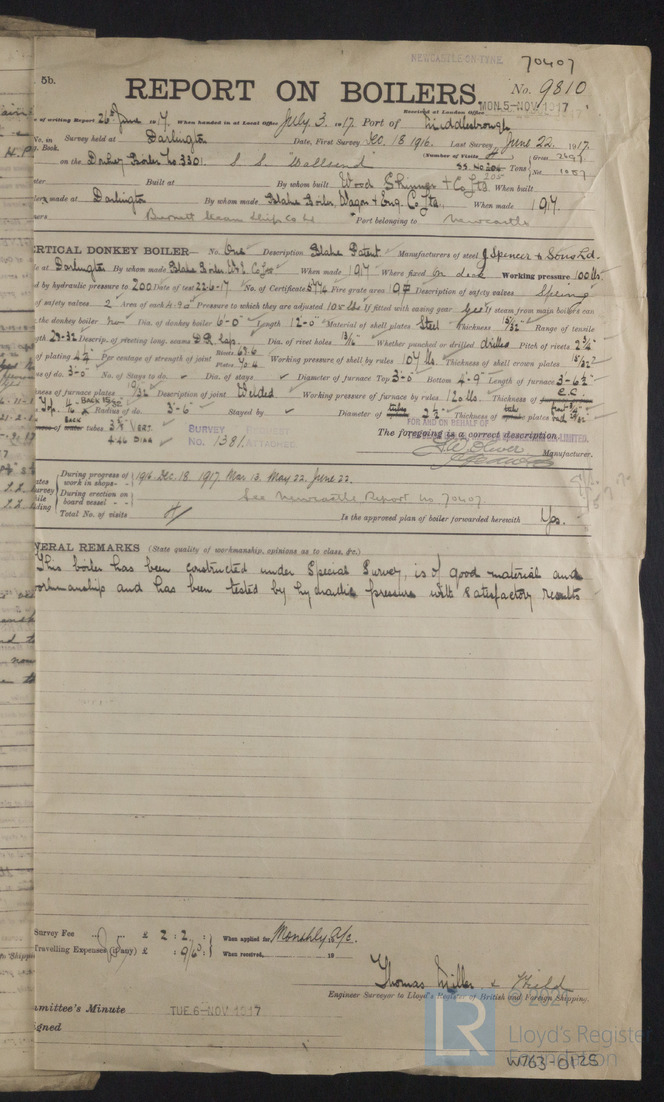 NEWCASTLE-ON-TYNE
70407
5b.
REPORT ON BOILERS.
No. 9810
Received at London Office
MON. 5-NOV. 1917
of writing Report 26th June 1917. When handed in at Local Office July 3. 1917. Port of Middlesbrough
No. in Survey held at Darlington Date, First Survey Dec. 18 1916. Last Survey June 22. 1917.
g. Book. (Number of Visits 4) Gross 2697
on the Donkey Boiler No 3301. S. S. "Wallsend" Tons Net
Built at By whom built Wood Skinner & Co Ltd When built
made at Darlington By whom made Blake Boiler, Wagon & Eng. Co Ltd. When made 1917.
Burnett Steam Ship Co Ld Port belonging to Newcastle
VERTICAL DONKEY BOILER— No. One Description Blake Patent Manufacturers of steel J. Spencer & Sons Ltd.
at Darlington By whom made Blake Boiler W & E Co Ltd When made 1917 Where fixed on deck Working pressure 100 lbs
by hydraulic pressure to 200 Date of test 22-6-17 No. of Certificate 5776 Fire grate area Description of safety valves Spring
of safety valves 2 Area of each 4.90" Pressure to which they are adjusted 105 lbs If fitted with easing gear yes If steam from main boilers can
the donkey boiler no Dia. of donkey boiler 6'-0" Length 12'-0" Material of shell plates Steel Thickness 15/32" Range of tensile
28-32 Descrip. of riveting long. seams D.R. lap. Dia. of rivet holes 13/16" Whether punched or drilled drilled Pitch of rivets 2 3/4"
of plating 4 1/4" Per centage of strength of joint Rivets Plates 70.4 Working pressure of shell by rules 107 lbs. Thickness of shell crown plates 15/32"
of do. 3'-0" No. of Stays to do. Dia. of stays Diameter of furnace Top 3'-0" Bottom 4'-9" Length of furnace 3'-6 1/2"
of furnace plates 19/32" Description of joint Welded Working pressure of furnace by rules 120 lbs. Thickness of
Radius of do. 3'-6" Stayed by Diameter of tubes 2 1/2" Thickness of tube plates
of tubes 3 3/8" VERT. 4.46 DIAG
SURVEY
No. 1381 ATTACHED
FOR AND ON BEHALF OF
The foregoing is a correct description
Manufacturer.
During progress of work in shops - - 1916. Dec. 18. 1917. Mar. 13. May 22. June 22.
During erection on board vessel - - See Newcastle Report No. 70407
Total No. of visits 4 Is the approved plan of boiler forwarded herewith Yes.
GENERAL REMARKS (State quality of workmanship, opinions as to class, &c.)
This boiler has been constructed under Special Survey, is of good material and
workmanship and has been tested by hydraulic pressure with satisfactory results
Survey Fee ... £ 2 : 2 : When applied for, Monthly A/c.
Travelling Expenses (if any) £ : 9/6 : When received, 19
Thomas Miller & Field
Engineer Surveyor to Lloyd's Register of British and Foreign Shipping.
mmittee's Minute TUE. 6-NOV. 1917
igned
© 2021
LR
Lloyd's Register
Foundation
W763-0125